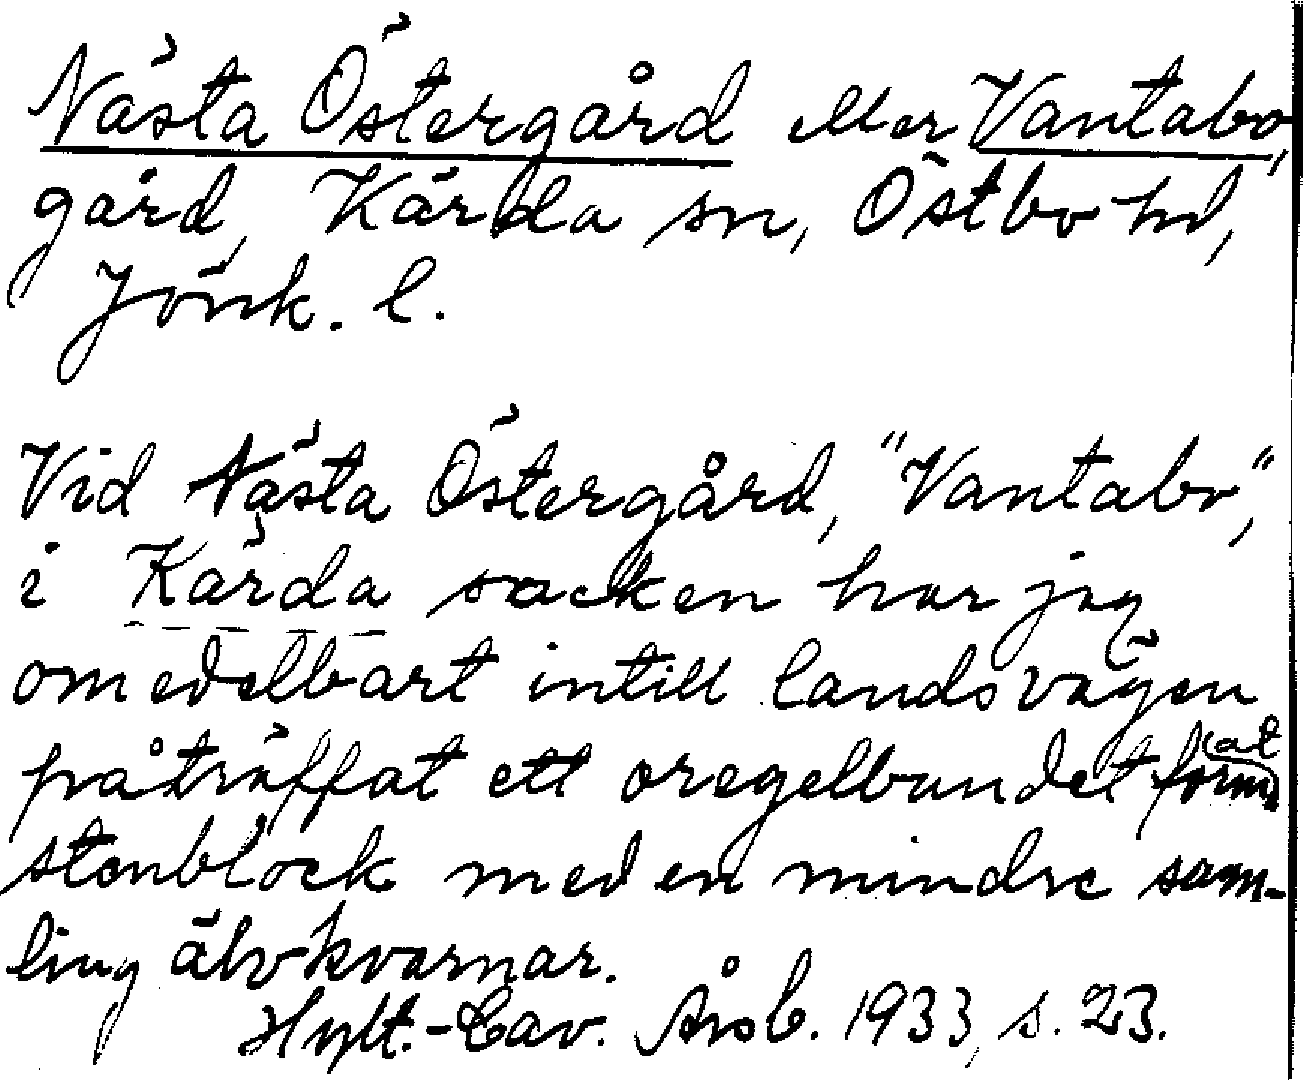 Nästa Östergård eller Vantabo,
gård, Kärda sn, Östbo hd,
Jönk. l.
Vid Nästa Östergård, "Vantabo",
i Kärda socken har jag
omedelbart intill landsvägen
påträffat ett oregelbundet format
stenblock med en mindre sam-
ling älvkvarnar.
Hylt.-Cav. Årsb. 1933, s. 23.